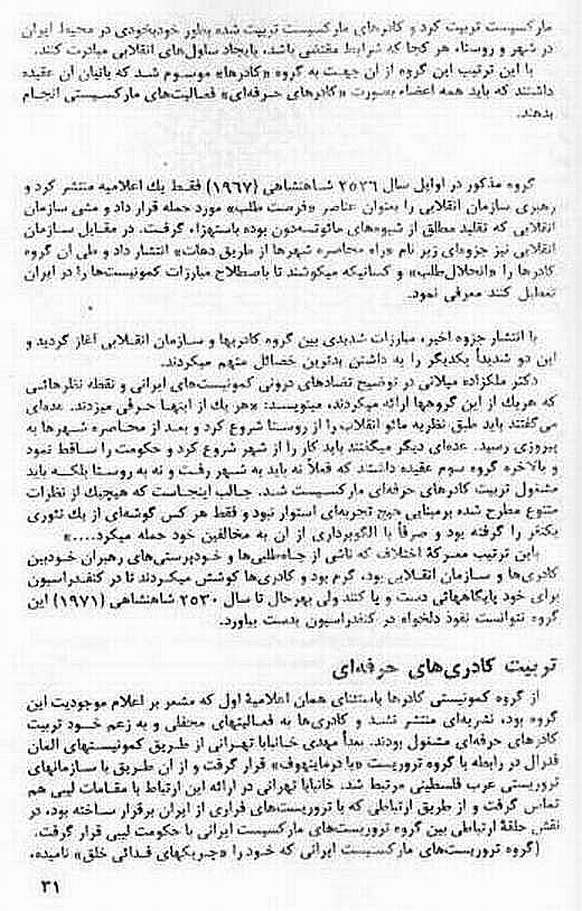 مارکسیست تربیت کرد و کادرهای مارکسیست تربیت شده بطور خودبخودی در محیط ایران
در شهر و روستا، هر کجا که شرایط مقتضی باشد، بایجاد سلول‌های انقلابی مبادرت کنند.
با این ترتیب این گروه از آن جهت به گروه «کادرها» موسوم شد که بانیان آن عقیده
داشتند که باید همه اعضاء بصورت «کادرهای حرفه‌ای» فعالیت‌های مارکسیستی انجام
بدهند.
گروه مذکور در اوایل سال ۲۵۲۶ شاهنشاهی (۱۹۶۷) فقط یك اعلامیه منتشر کرد و
رهبری سازمان انقلابی را بعنوان عناصر «فرصت طلب» مورد حمله قرار داد و مشی سازمان
انقلابی که تقلید مطلق از شیوه‌های مائوتسه‌دون بوده باستهزاء گرفت. در مقابل سازمان
انقلابی نیز جزوه‌ای زیر نام «راه محاصره شهرها از طریق دهات» انتشار داد و طی آن گروه
کادرها را «انحلال‌طلب» و کسانیکه میکوشند تا باصطلاح مبارزات کمونیست‌ها را در ایران
تعطیل کنند معرفی نمود.
با انتشار جزوه اخیر، مبارزات شدیدی بین گروه کادریها و سازمان انقلابی آغاز گردید و
این دو شدیداً یکدیگر را به داشتن بدترین خصائل متهم میکردند.
دکتر ملکزاده میلانی در توضیح تضادهای درونی کمونیست‌های ایرانی و نقطه نظرهائی
که هریك از این گروهها ارائه میکردند، مینویسد: «هر یك از اینها حرفی میزدند. عده‌ای
می‌گفتند باید طبق نظریه مائو انقلاب را از روستا شروع کرد و بعد از محاصره شهرها به
پیروزی رسید. عده‌ای دیگر میگفتند باید کار را از شهر شروع کرد و حکومت را ساقط نمود
و بالاخره گروه سوم عقیده داشتند که فعلاً نه باید به شهر رفت و نه به روستا بلکه باید
مشغول تربیت کادرهای حرفه‌ای مارکسیست شد. جالب اینجاست که هیچیك از نظرات
متنوع مطرح شده برمبنایی هیچ تجربه‌ای استوار نبود و فقط هر کس گوشه‌ای از یك تئوری
یکنفر را گرفته بود و صرفاً با الگوبرداری از آن به مخالفین خود حمله میکرد....»
باین ترتیب معرکهٔ اختلاف که ناشی از جاه‌طلبی‌ها و خودپرستی‌های رهبران خودبین
کادری‌ها و سازمان انقلابی بود، گرم بود و کادری‌ها کوشش میکردند تا در کنفدراسیون
برای خود پایگاههائی دست و پا کنند ولی بهرحال تا سال ۲۵۳۰ شاهنشاهی (۱۹۷۱) این
گروه نتوانست نفوذ دلخواه در کنفدراسیون بدست بیاورد.
تربیت کادری‌های حرفه‌ای
از گروه کمونیستی کادرها باستثنای همان اعلامیهٔ اول که مشعر بر اعلام موجودیت این
گروه بود، نشریه‌ای منتشر نشد و کادری‌ها به فعالیتهای محفلی و به زعم خود تربیت
کادرهای حرفه‌ای مشغول بودند. بعداً مهدی خانبابا تهرانی از طریق کمونیستهای آلمان
فدرال در رابطه با گروه تروریست «بادرماینهوف» قرار گرفت و از آن طریق با سازمانهای
تروریستی عرب فلسطینی مرتبط شد. خانبابا تهرانی در ارائه این ارتباط با مقامات لیبی هم
تماس گرفت و از طریق ارتباطی که با تروریست‌های فراری از ایران برقرار ساخته بود، در
نقش حلقهٔ ارتباطی بین گروه تروریست‌های مارکسیست ایرانی با حکومت لیبی قرار گرفت.
(گروه تروریست‌های مارکسیست ایرانی که خود را «چریکهای فدائی خلق» نامیده،
۳۱